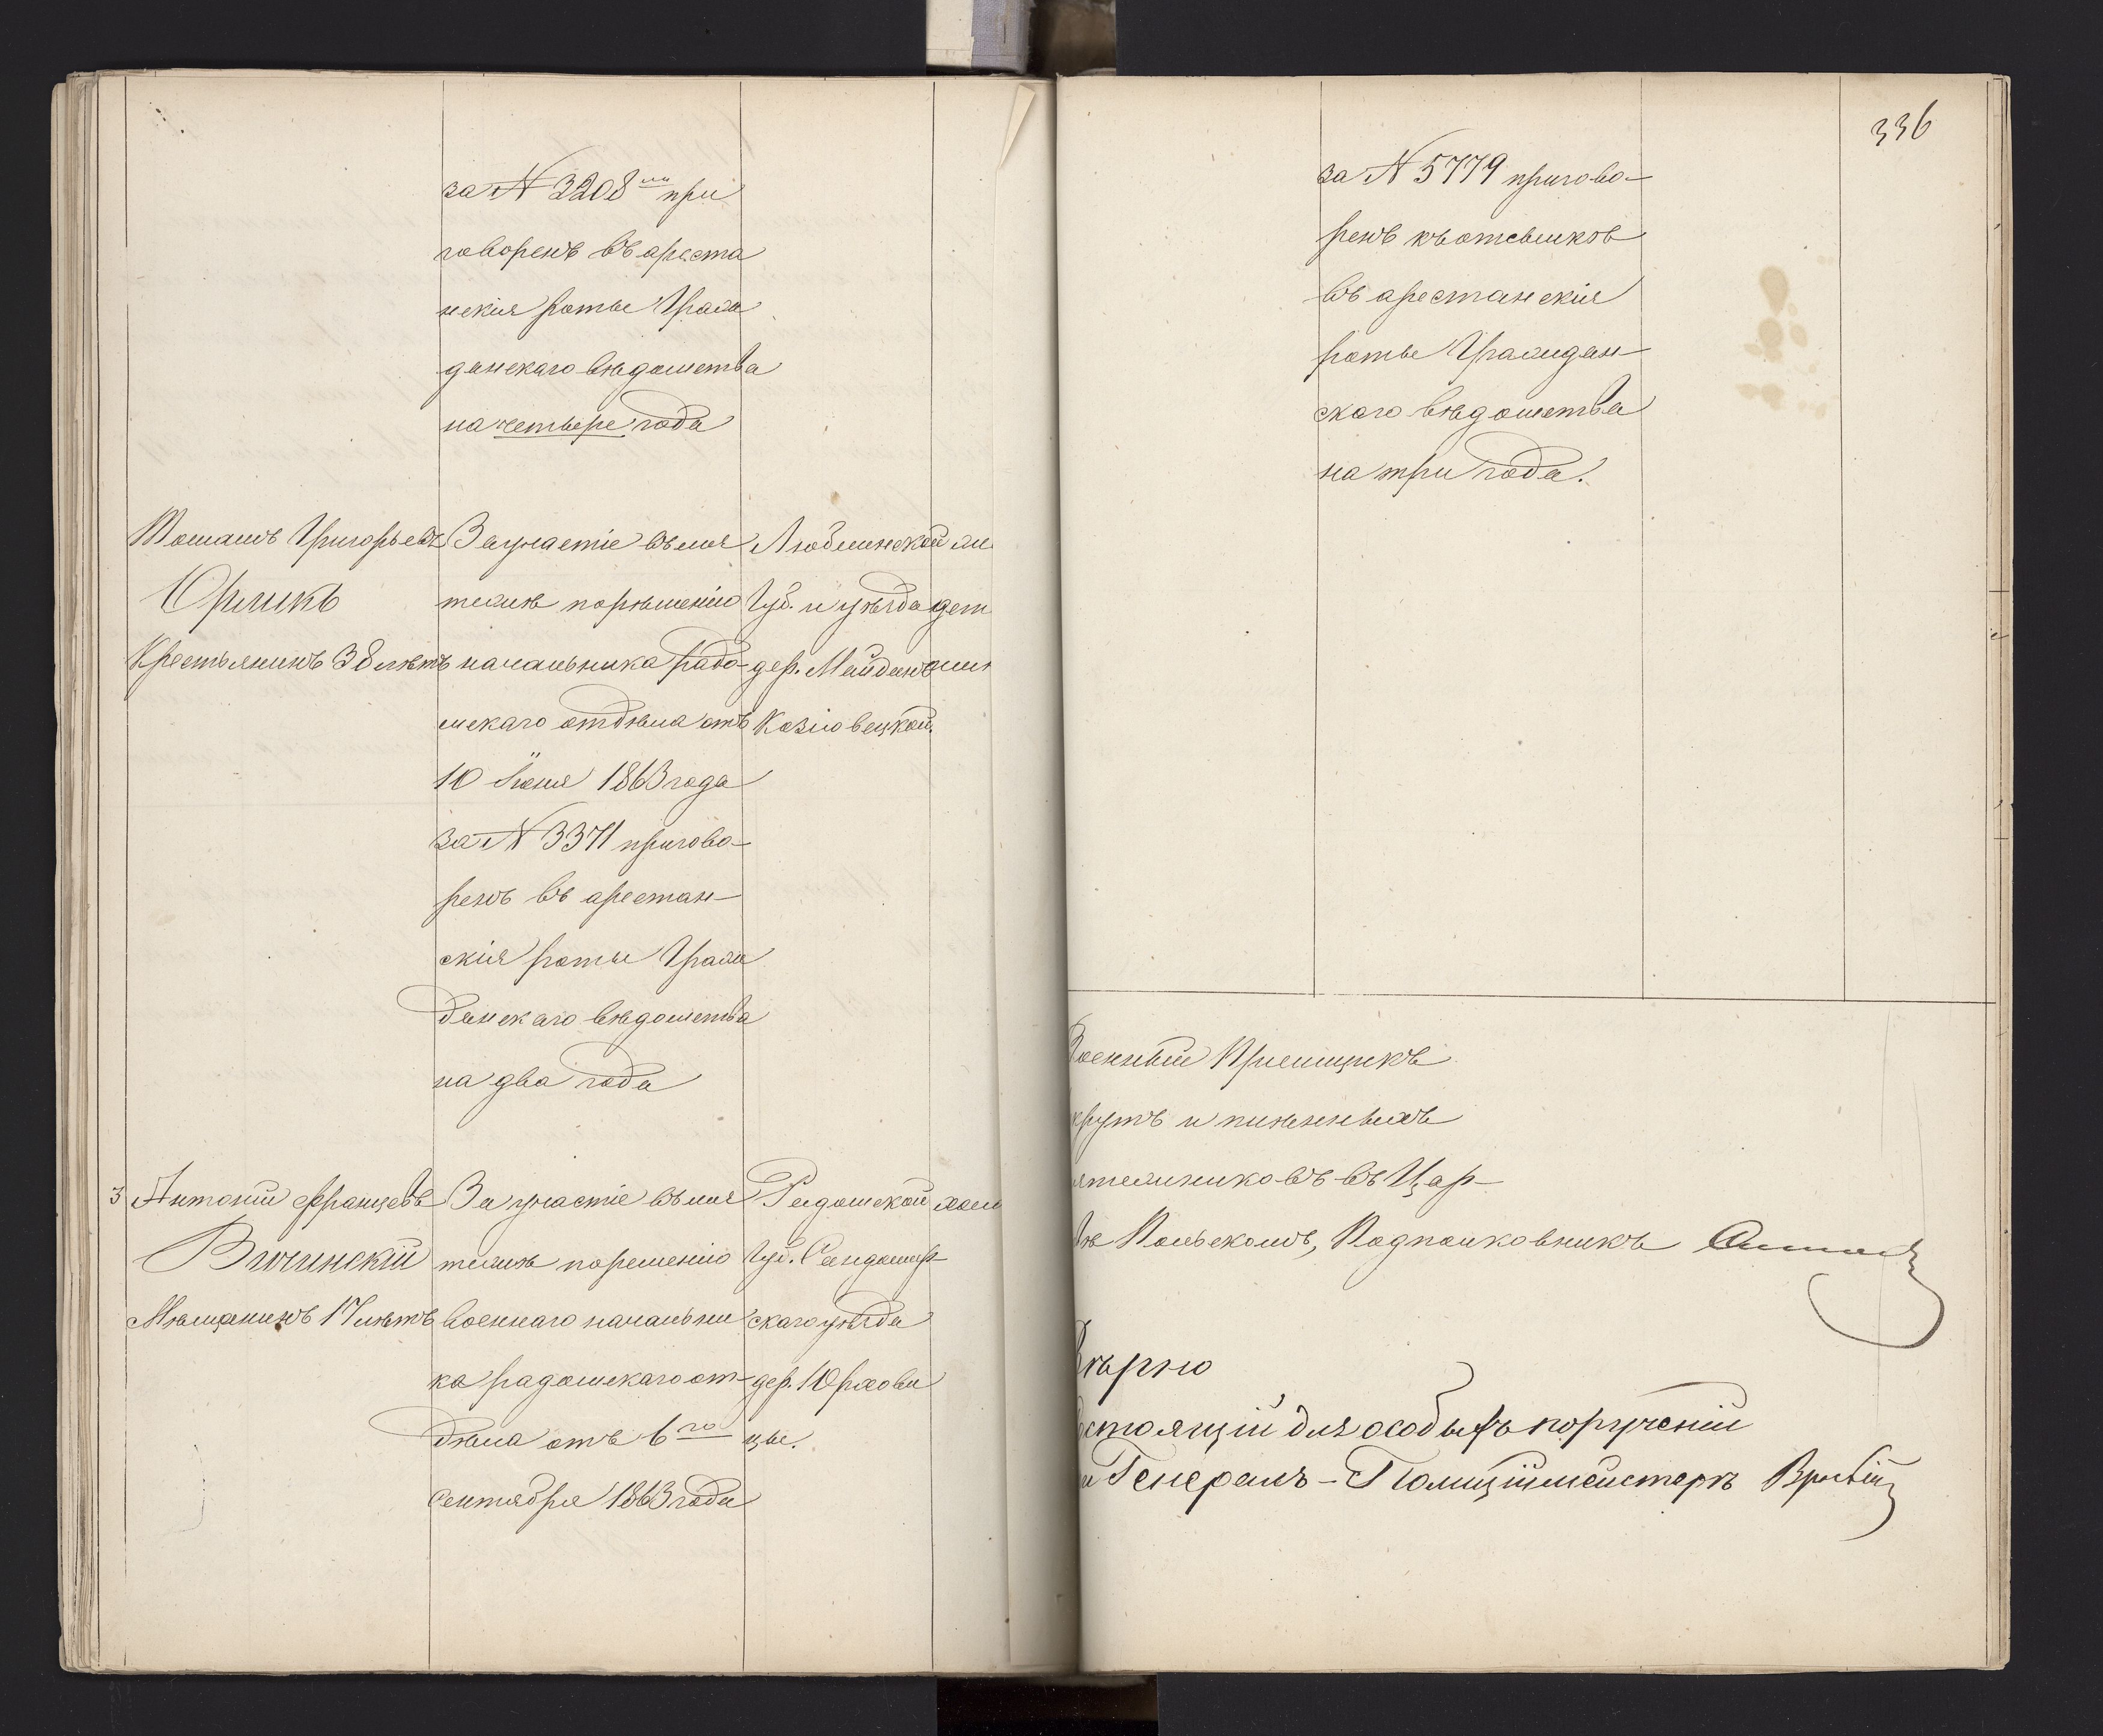 за № 3208 ми при
говоренъ въ ареста
нскія роты Граж
данскаго вѣдомства
на четыре года
Томашъ Григорьевъ
Орликъ
Крестьянинъ 38 лѣтъ
За участіе въ мя
тежѣ по рѣшенію
начальника Радо-
мскаго отдѣла отъ
10 Іюня 1863 года
за № 3371 пригово-
ренъ въ арестан-
скія роты Граж
данскаго вѣдомства
на два года
Люблинской
Губ. и уѣзда
дер. Майданъ
Козловецкой.
3 Антоній Францевъ
Мѣщанинъ 17 лѣтъ
За участіе въ мя
тежѣ по решенію
военнаго начальни
ка радомскаго от-
дѣла отъ 6го
Сентября 1863 года
Радомской
Губ. Сандомир-
скаго уѣзда
дер. Юрхови
цы.
336
за № 5779 пригово-
ренъ къ отсылкѣ
въ арестанскія
роты Граждан-
скаго вѣдомства
на три года.
Военный Пріемщикъ
рутъ и плѣнныхъ
ятежниковъ въ Цар-
вѣ Польскомъ, Подполковникъ
Вѣрно
стоящій для особыхъ порученій
и Генералъ-Полиціймейстерѣ